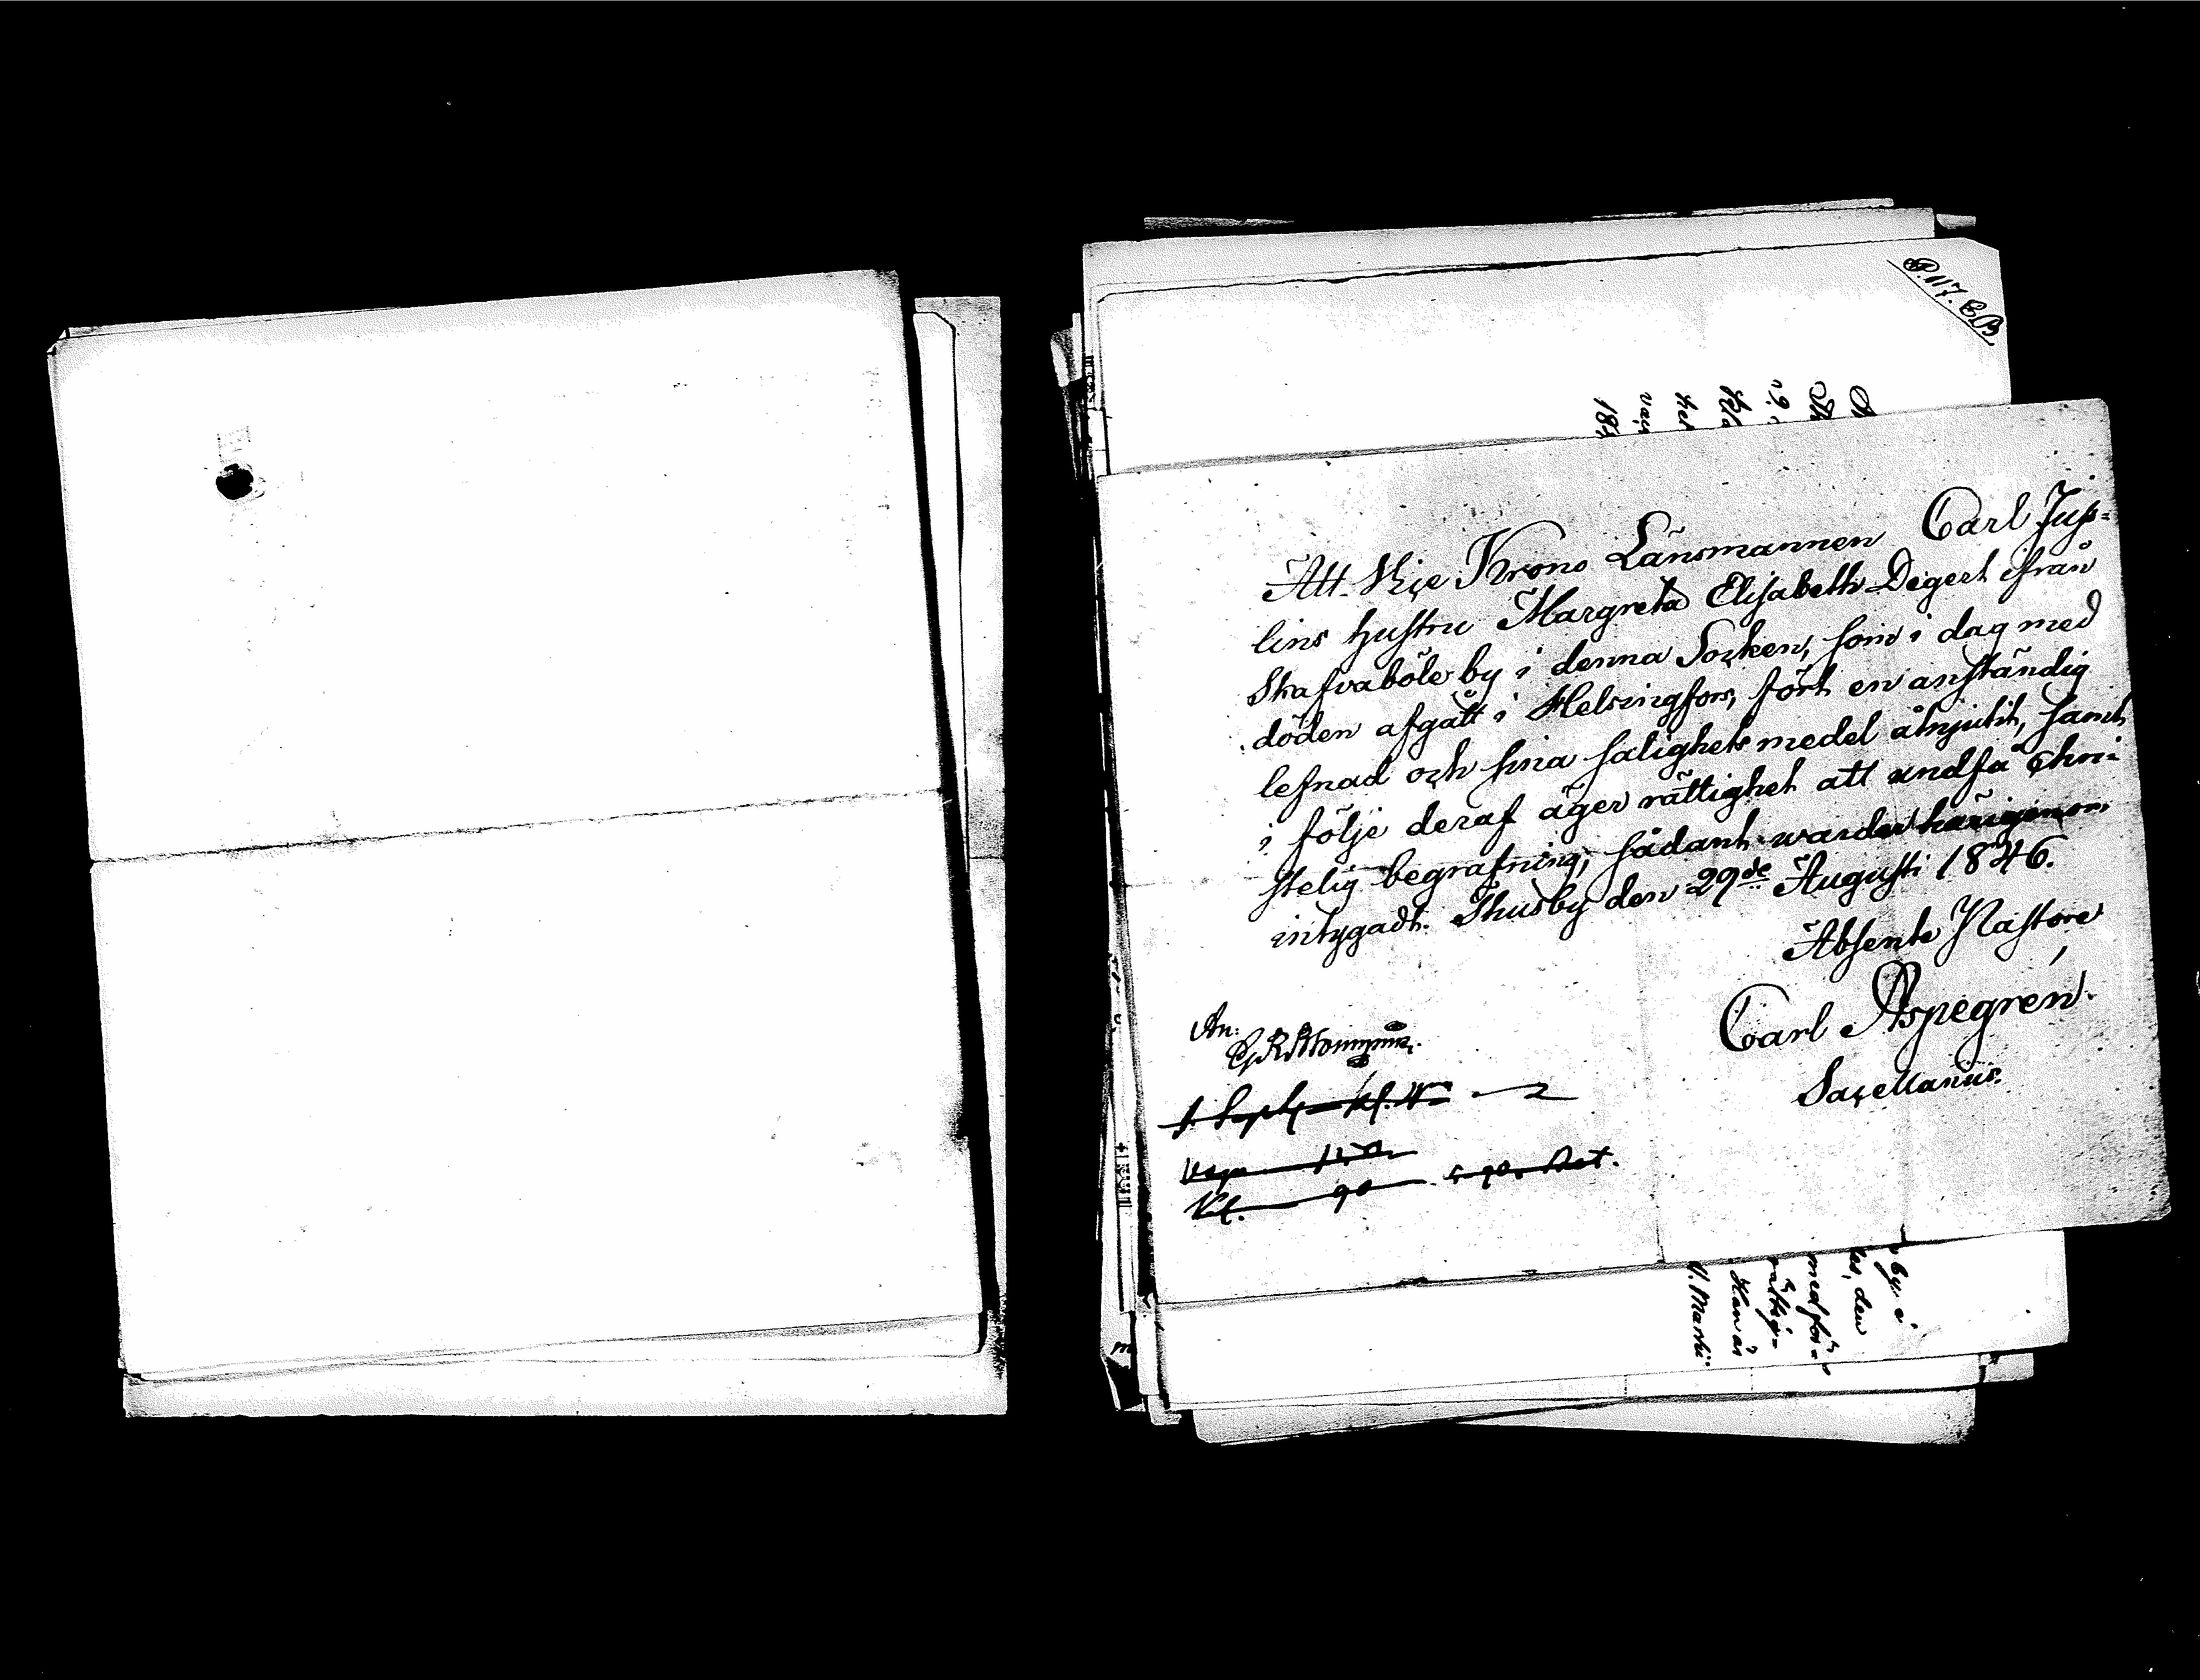 P. 117. C.B.
Att Vice Krono Länsmannen Carl Jus-
lins hustru Margreta Elisabeth Degert ifrån
Skafvaböle by i denna Socken, som i dag med
döden afgått i Helsingfors, fört en anständig
lefnad och sina salighets medel åtnjutit, samt
i följe deraf äger rättighet att undfå Chri-
stelig begrafning, sådant warder härigenom
intygadt. Thusby den 29de Augusti 1846.
Absente Pastore
Carl Aspegren.
Sacellanus.
An:
by i
den
med för-
rättig-
Han är